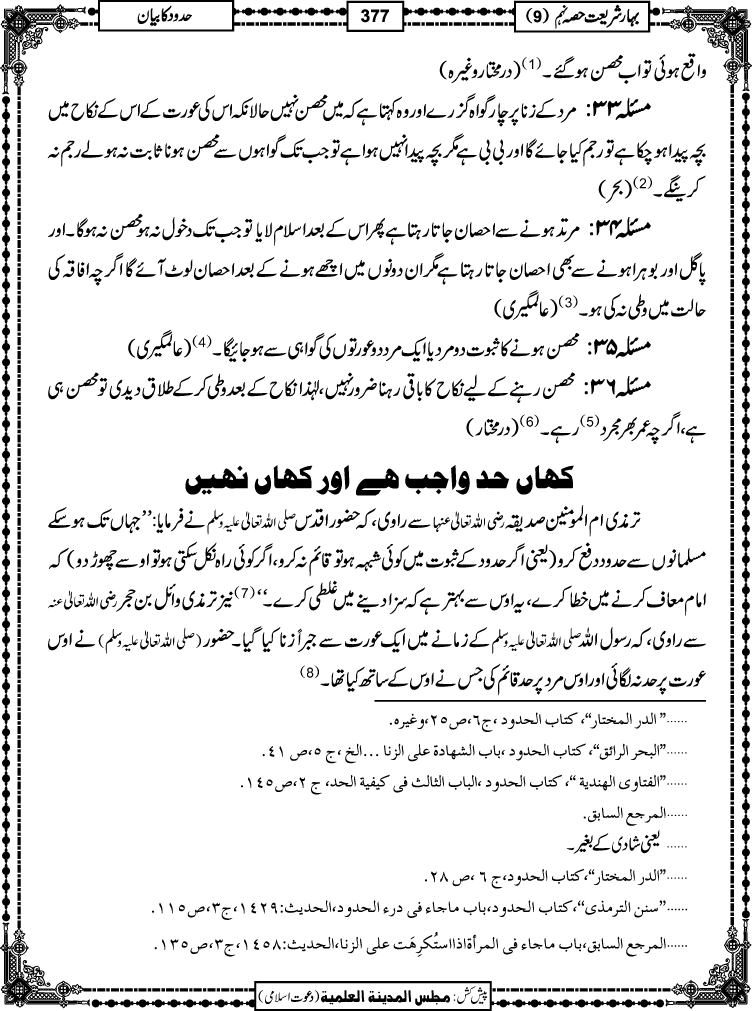 بہار شریعت حصہ نہم (9)
377
حدود کا بیان
واقع ہوئی تو اب محصن ہوگئے۔(1) (درمختار وغیرہ)
مسئلہ ۳۳: مرد کے زنا پر چار گواہ گزرے اور وہ کہتا ہے کہ میں محصن نہیں حالانکہ اس کی عورت کے اس کے نکاح میں
بچہ پیدا ہوچکا ہے تو رجم کیا جائے گا اور بی بی ہے مگر بچہ پیدا نہیں ہوا ہے تو جب تک گواہوں سے محصن ہونا ثابت نہ ہولے رجم نہ
کرینگے۔(2) (بحر)
مسئلہ ۳۴: مرتد ہونے سے احصان جاتا رہتا ہے پھر اس کے بعد اسلام لایا تو جب تک دخول نہ ہو محصن نہ ہوگا۔ اور
پاگل اور بوہرا ہونے سے بھی احصان جاتا رہتا ہے مگر ان دونوں میں اچھے ہونے کے بعد احصان لوٹ آئے گا اگرچہ افاقہ کی
حالت میں وطی نہ کی ہو۔(3) (عالمگیری)
مسئلہ ۳۵: محصن ہونے کا ثبوت دو مرد یا ایک مرد دو عورتوں کی گواہی سے ہوجائیگا۔(4) (عالمگیری)
مسئلہ ۳۶: محصن رہنے کے لیے نکاح کا باقی رہنا ضرور نہیں، لہٰذا نکاح کے بعد وطی کرکے طلاق دیدی تو محصن ہی
ہے، اگرچہ عمر بھر مجرد(5) رہے۔(6) (درمختار)
کہاں حد واجب ہے اور کہاں نہیں
ترمذی ام المومنین صدیقہ رضی اللہ تعالٰی عنہا سے راوی، کہ حضور اقدس صلی اللہ تعالٰی علیہ وسلم نے فرمایا: ’’جہاں تک ہوسکے
مسلمانوں سے حدود دفع کرو (یعنی اگر حدود کے ثبوت میں کوئی شبہہ ہو تو قائم نہ کرو، اگر کوئی راہ نکل سکتی ہو تو اوسے چھوڑ دو) کہ
امام معاف کرنے میں خطا کرے، یہ اوس سے بہتر ہے کہ سزا دینے میں غلطی کرے۔‘‘(7) نیز ترمذی وائل بن حجر رضی اللہ تعالٰی عنہ
سے راوی، کہ رسول اللہ صلی اللہ تعالٰی علیہ وسلم کے زمانے میں ایک عورت سے جبراً زنا کیا گیا۔ حضور (صلی اللہ تعالٰی علیہ وسلم) نے اوس
عورت پر حد نہ لگائی اور اوس مرد پر حد قائم کی جس نے اوس کے ساتھ کیا تھا۔(8)
......”الدر المختار“، کتاب الحدود ،ج٦،ص٢٥،وغیرہ.
......”البحر الرائق“، کتاب الحدود ،باب الشھادة علی الزنا ...الخ ،ج ٥،ص ٤١.
......”الفتاوی الھندیة“، کتاب الحدود ،الباب الثالث فی کیفیة الحد، ج ٢،ص١٤٥.
......المرجع السابق.
...... یعنی شادی کے بغیر۔
......”الدر المختار“،کتاب الحدود،ج ٦ ،ص ٢٨.
......”سنن الترمذی“، کتاب الحدود،باب ماجاء فی درء الحدود،الحدیث:١٤٢٩،ج٣،ص١١٥.
......المرجع السابق،باب ماجاء فی المرأة اذا استُکرِھَت علی الزنا،الحدیث:١٤٥٨،ج٣،ص١٣٥.
پیش کش: مجلس المدینة العلمیة (دعوت اسلامی)